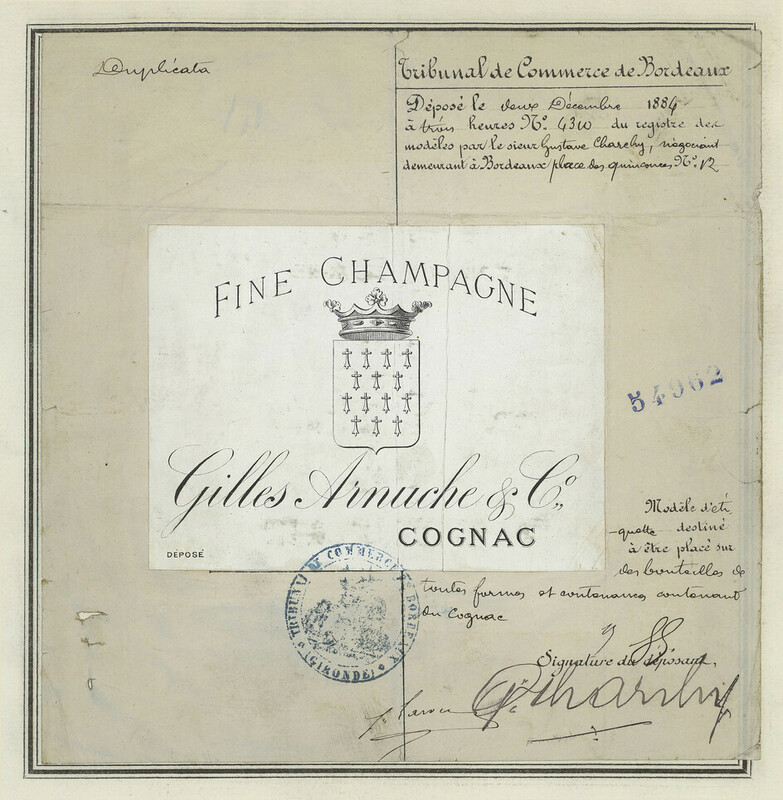 Duplicata
Tribunal de Commerce de Bordeaux
Déposé le deux Décembre 1884
à trois heures N° 4310 du registre des
modèles par le sieur Gustave Charchy, négociant
demeurant à Bordeaux place des quinconces N° 12
FINE CHAMPAGNE
54962
Gilles Arnuche & Co.,
COGNAC
DÉPOSÉ
Modèle d'éti
-quette destiné
à être placé sur
des bouteilles de
toutes formes et contenances contenant
du Cognac
TRIBUNAL DE COMMERCE DE BORDEAUX
(GIRONDE)
Signature du déposant,